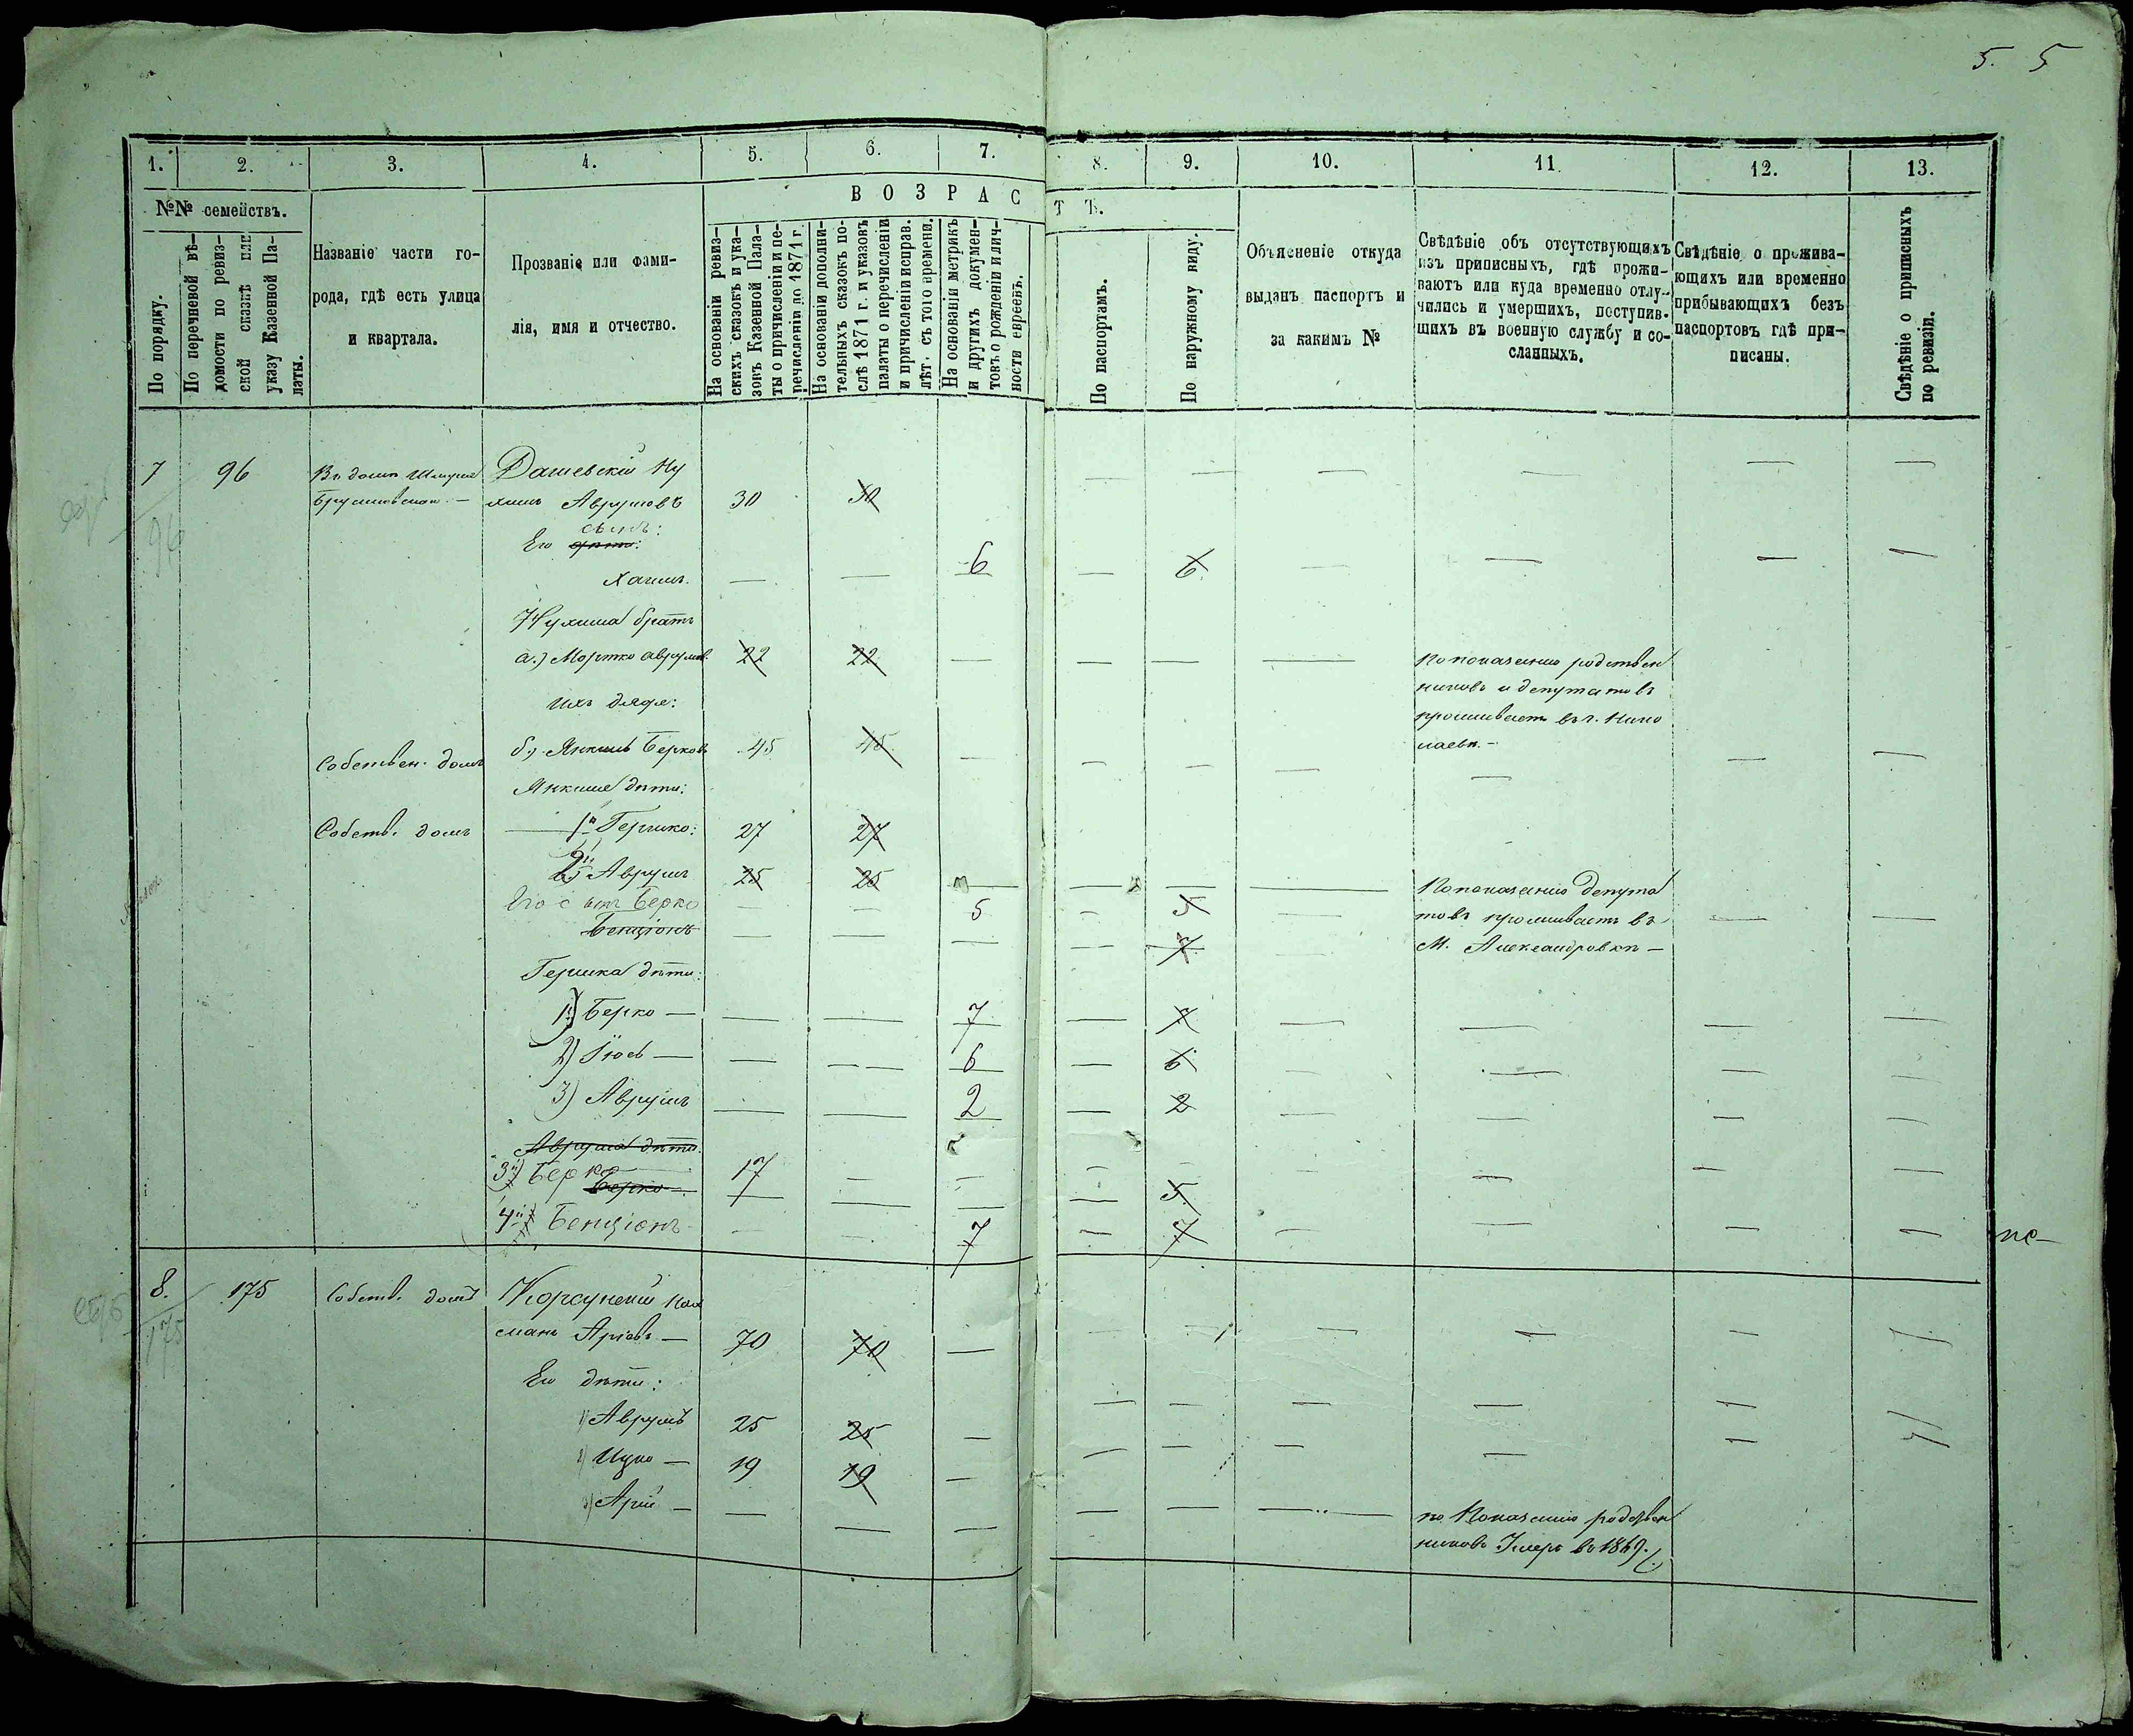 5. 5
1. 2. 3. 4. 5. 6. 7. 8. 9. 10. 11. 12. 13.
№№ семействъ.
По порядку.
По перечневой вѣ-
домости по ревиз-
ской сказкѣ или
указу Казенной Па-
латы.
Названіе части го-
рода, гдѣ есть улица
и квартала.
Прозваніе или фами-
лія, имя и отчество.
ВОЗРАСТЪ.
На основаніи ревиз-
скихъ сказокъ и ука-
зовъ Казенной Пала-
ты о причисленіи и пе-
речисленіи до 1871 г.
На основаніи дополни-
тельныхъ сказокъ по-
слѣ 1871 г. и указовъ
палаты о перечисленіи
и причисленіи исправ.
лѣт. съ того времени.
На основаніи метрикъ
и другихъ докумен-
товъ о рожденіи и лич-
ности евреевъ.
По паспортамъ.
По наружному виду.
Объясненіе откуда
выданъ паспортъ и
за какимъ №
Свѣдѣніе объ отсутствующихъ
изъ приписныхъ, гдѣ прожи-
ваютъ или куда временно отлу-
чились и умершихъ, поступив-
шихъ въ военную службу и со-
сланныхъ.
Свѣдѣніе о прожива-
ющихъ или временно
прибывающихъ безъ
паспортовъ гдѣ при-
писаны.
Свѣдѣніе о приписныхъ
по ревизіи.
7 96 Въ домѣ Дашевскій Ну
химъ Аврумовъ 30 30
96
сынъ:
Его дѣти:
Хаимъ. — — 6 — 6 — — — —
Нухима братъ
а.) Мортко Аврумов. 22 22 — — — — По показанію родствен
никовъ и депутатовъ
проживаетъ въ г. Нико
лаевѣ. —
Ихъ дядя:
Собствен. домъ б.) Янкель Берковъ 45 45 — — — — — — —
Янкеля дѣти:
Собств. домъ 1й Гершко: 27 27
2й Аврумъ 25 25 — — — — По показанію депута
товъ проживаетъ въ
М. Александровкѣ —
Его с Берко — — 5 — 5 — — —
Бенціонъ — — — — 7 —
Гершка дѣти:
1) Берко — — — 7 — 7 — — — —
2) Іосъ — — — 6 — 6 — — — —
3) Аврумъ — — 2 — 2 — — — —
Аврума дѣти
3й Берко 17 — — — — — — —
Берко — — — — 5.
4й Бенціонъ — — 7 — 7 — — — —
8. 175 Собств. домъ Корсунскій Кал
манъ Аріевъ — 70 70 — — — — — —
175
Его дѣти:
1) Аврумъ 25 25 — — — — — —
2) Ицко — 19 19 — — — — — —
3) Арій — — — — — — — по Показанію родствен
никовъ Умеръ въ 1869.